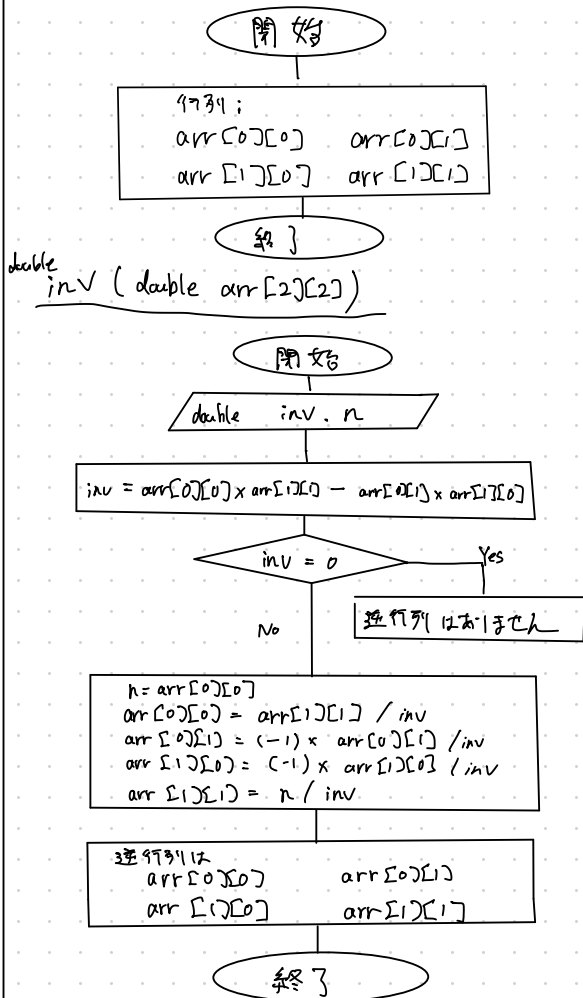 開始
行列:
arr[0][0] arr[0][1]
arr[1][0] arr[1][1]
終了
double
inv (double arr[2][2])
開始
double inv. n
inv = arr[0][0] × arr[1][1] - arr[0][1] × arr[1][0]
inv = 0
Yes
逆行列はありません
No
n = arr[0][0]
arr[0][0] = arr[1][1] / inv
arr[0][1] = (-1) × arr[0][1] / inv
arr[1][0] = (-1) × arr[1][0] / inv
arr[1][1] = n / inv
逆行列は
arr[0][0] arr[0][1]
arr[1][0] arr[1][1]
終了